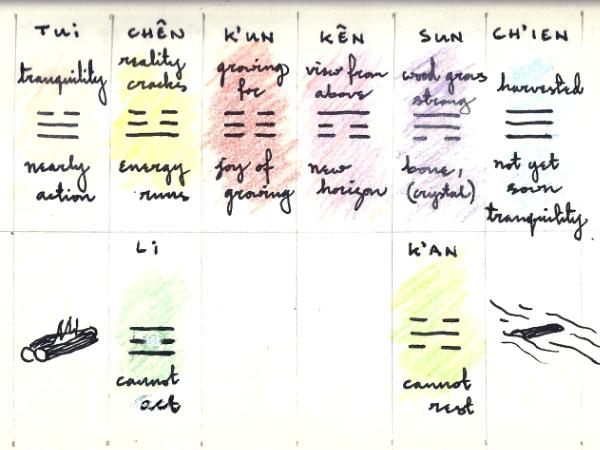 TUI
tranquility
nearly
action
CHÊN
reality
cracks
energy
runs
K'UN
growing
for
joy of
growing
KÊN
view from
above
new
horizon
SUN
wood grows
strong
bone,
(crystal)
CH'IEN
harvested
not yet
sown
tranquility
LI
cannot
act
K'AN
cannot
rest